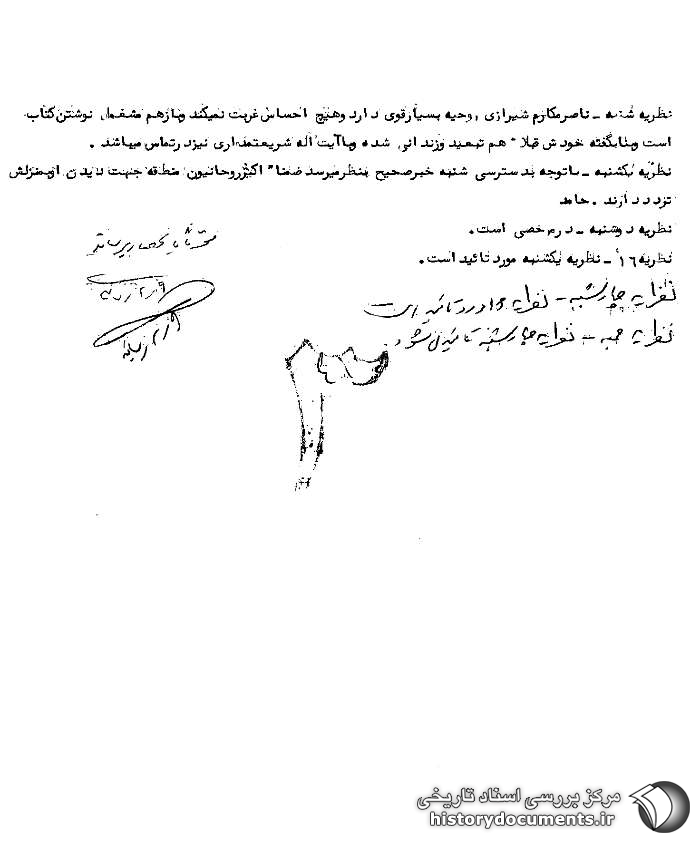 نظریه شنبه ـ ناصر مکارم شیرازی روحیه بسیار قوی دارد و هیچ احساس غربت نمیکند و بازهم مشغول نوشتن کتاب
است و بنا بگفته خودش قبلا" هم تبعید و زندانی شده و با آیت اله شریعتمداری نیز در تماس میباشد .
نظریه یکشنبه ـ با توجه به دسترسی شنبه خبر صحیح بنظر میرسد ضمنا" اکثر روحانیون منطقه جهت دیدن او بمنزلش
تردد دارند . حامد
نظریه دوشنبه ـ در مرخصی است .
نظریه ۱۶ﻫ ـ نظریه یکشنبه مورد تائید است .
نظریه چهارشنبه ـ نظریه مورد تائید است
نظریه جمعه ـ نظریه چهارشنبه تائید می‌شود .
۳
مرکز بررسی اسناد تاریخی
historydocuments.ir